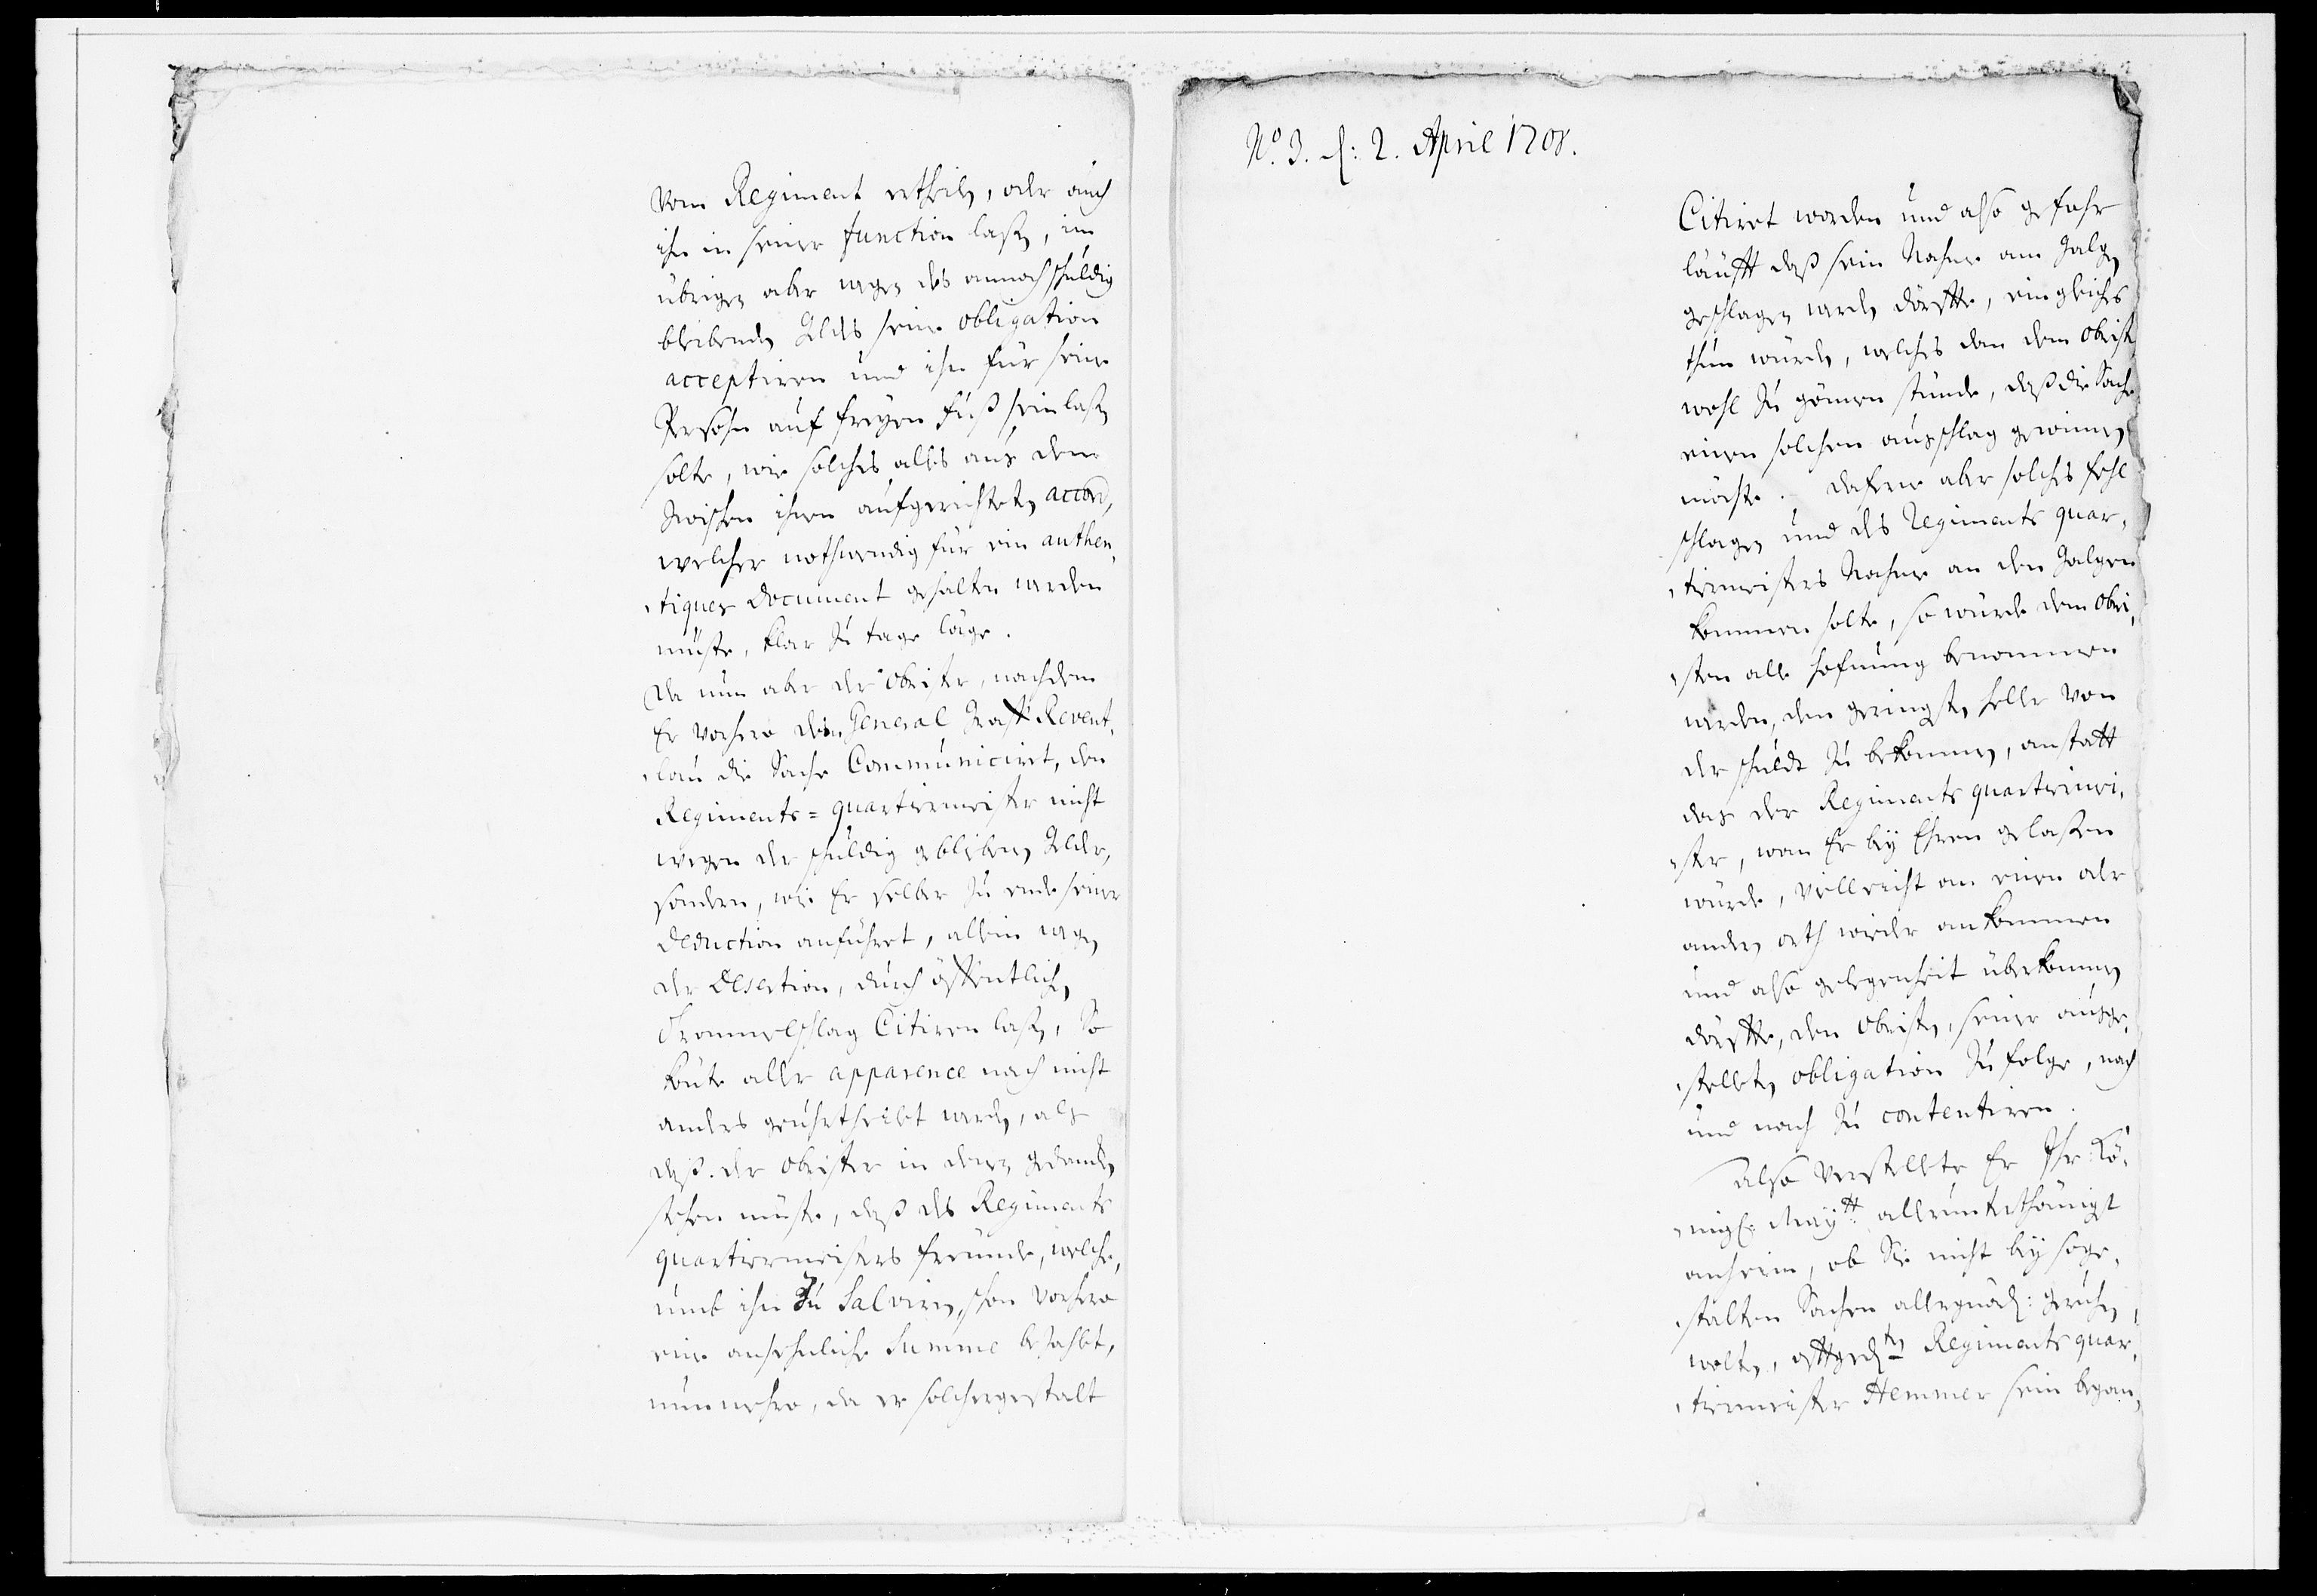 vom Regiment ertheilen, oder auch
ihn in seiner function laßen, im
übrigen aber wegen des annoch schuldig
bleibenden Geldes seine obligation
acceptiren und ihn für seine
Persohn auf freyen fuß sein laßen
solte, wie solches alles aus dem
Zwischen ihnen aufgerichteten accord,
welcher nothwendig für ein authen,
tiques Document gehalten werden
müste, klar zu tage läge.
Da nun aber der Obrister, nachdem
Er vorhero dem General Graff Revent,
lau die Sache Communiciret, den
Regiments=quartiermeister nicht
wegen der schuldig gebliebenen Gelder,
sondern, wie Er selber zu ende seiner
Deduction anführet, allein wegen
der Desertion, durch öffentlichen
Trommelschlag Citiren laßen, So
könte aller apparence nach nicht
anders geurtheilet werden, als
daß der Obrister in denen gedancken
stehen müste, daß des Regiments
quartiermeisters freunde, welche,
umb ihn Zu Salviren, schon vorhero
eine ansehnliche Summe bezahlet,
nunmehro, da er solchergestalt
No. 3. d: 2. April 1708.
Citiret worden und also gefahr
läufft daß sein Nahme am Galgen
geschlagen werden dörffte, ein gleiches
thun würden, welches dan dem Obristen
wohl zu gönnen stünde, daß die Sache
einen solchen ausschlag gewinnen
möchte. Dafern aber solches fehl
schlagen und des Regiments quar,
tiermeisters Nahme an den Galgen
kommen solte, so würde dem Obri,
sten alle hofnung benommen
werden, den geringsten heller von
der schuldt zu bekommen, anstatt
das der Regiments quartiermei,
ster, wan Er bey Ehren gelaßen
würde, vielleicht an einen oder
andern orth wieder ankommen
und also gelegenheit überkommen
dörffte, den Obristen, seiner ausge,
stelleten obligation zu folge, nach
und nach zu contentiren.
Also verstellete Er Ihr Kö,
nigl. Maytt. allerunterthänigst
anheim, ob Sie nicht bey soge,
stalten Sachen allergnäd: geruhen
wolten, offtgedten Regiments quar,
tiermeister Hemmer sein began,